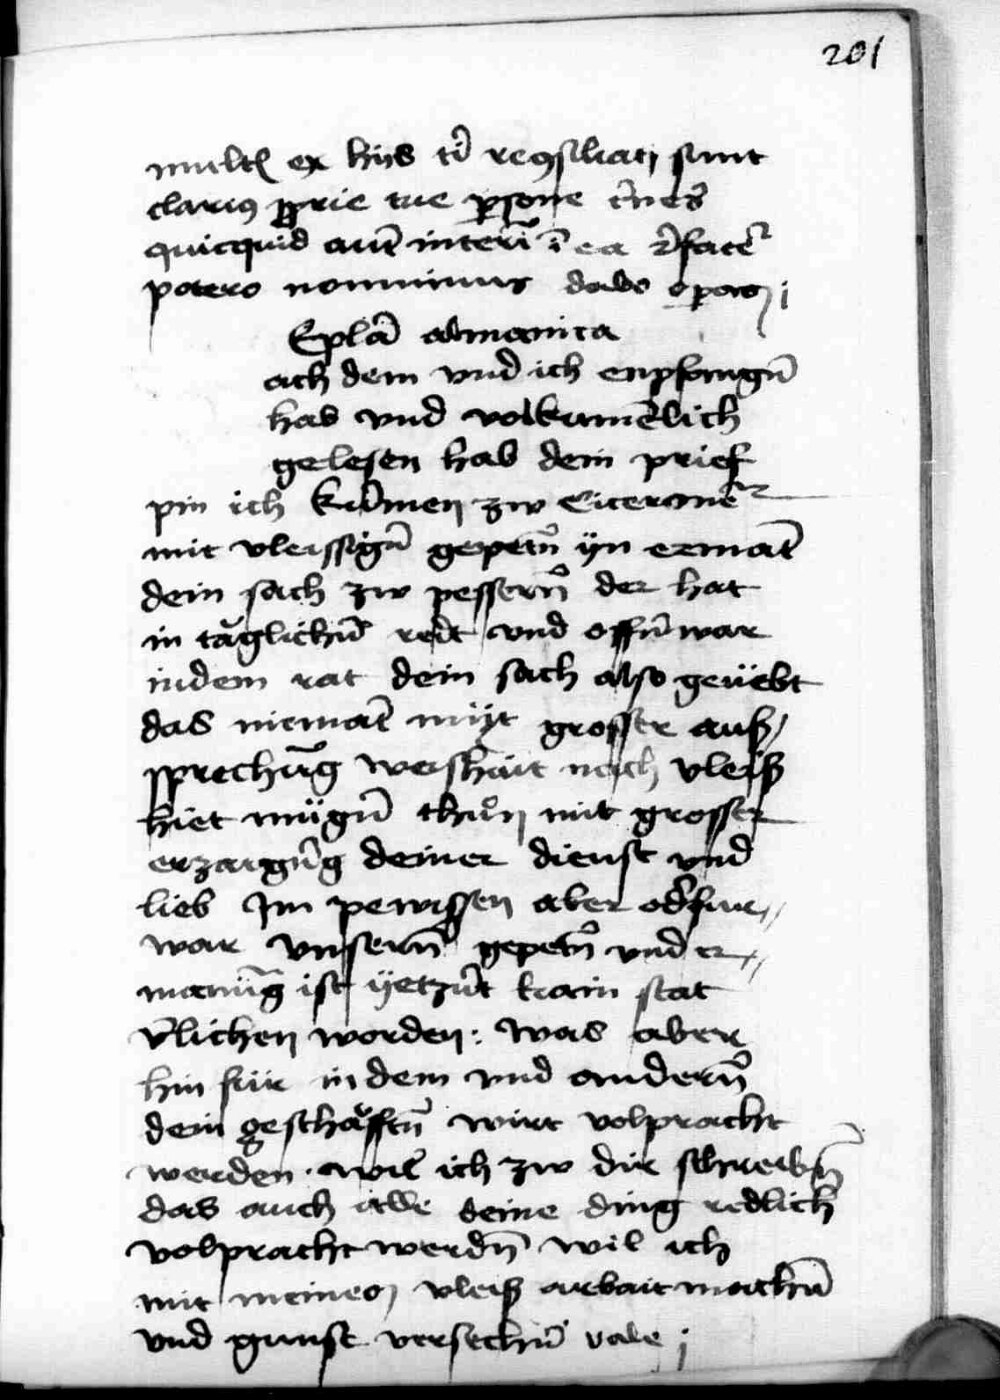 201
multi ex hiis tibi reconsiliati sunt
clarius proprie tue persone
quicquid autem interim in ea
potero nominius dabo operam
Epistola almanica
ach dem vnd ich enpfangn̄
hab vnd volkumēlich
gelesen hab dein prief
pin ich kūmen zw Ciceronē
mit vleissigū gepetn̄ yn ermāt
dein sach zw pessern̄ der hat
in täglichn̄ redt vnd offn̄war
indem rat dein sach also geüebt
das niemāt müt grosser auß
sprechūg weishait noch vleiß
hiet mügn̄ thun mit grosser
erzaigūg deiner dienst vnd
lieb Im pewissen aber
war vnsern̄ gepetn̄ vnd er
manūg ist yetzūt kain stat
v̄lichen worden : was aber
hin für in dem vnd andern̄
dein geschäfftn̄ wirt volpracht
werden wil ich zw dir schreibn̄
das auch deine ding redlich
volpracht werdn̄ wil ich
mit meinen vleiß arbait machn̄
vnd gunst versechn̄ vale